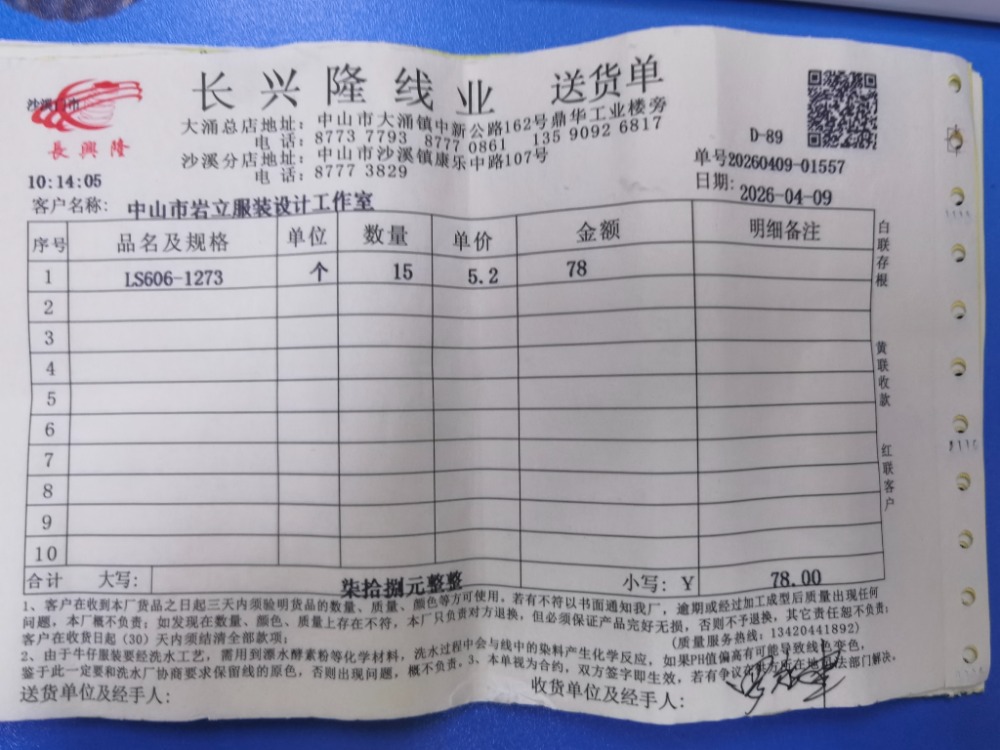 长兴隆线业 送货单
長興隆
大涌总店地址：中山市大涌镇中新公路162号鼎华工业楼旁
电 话：8773 7793 8777 0861 135 9092 6817
沙溪分店地址：中山市沙溪镇康乐中路107号
电 话：8777 3829
D-89
单号20260409-01557
10:14:05
日期：2026-04-09
客户名称：中山市岩立服装设计工作室
序号 品名及规格 单位 数量 单价 金额 明细备注
1 LS606-1273 个 15 5.2 78
2
3
4
5
6
7
8
9
10
合计 大写：柒拾捌元整整 小写：Y 78.00
白联存根
黄联收款
红联客户
1、客户在收到本厂货品之日起三天内须验明货品的数量、质量、颜色等方可使用。若有不符以书面通知我厂，逾期或经过加工成型后质量出现任何
问题，本厂概不负责；如发现在数量、颜色、质量上存在不符，本厂只负责对方退换，但必须保证产品完好无损，否则不予退换，其它责任恕不负责；
客户在收货日起（30）天内须结清全部款项；
（质量服务热线：13420441892）
2、由于牛仔服装要经洗水工艺，需用到漂水酵素粉等化学材料，洗水过程中会与线中的染料产生化学反应，如果PH值偏高有可能导致线色变色，
鉴于此一定要和洗水厂协商要求保留线的原色，否则出现问题，概不负责。3、本单视为合约，双方签字即生效，若有争议在供方所在地司法部门解决。
送货单位及经手人：
收货单位及经手人：